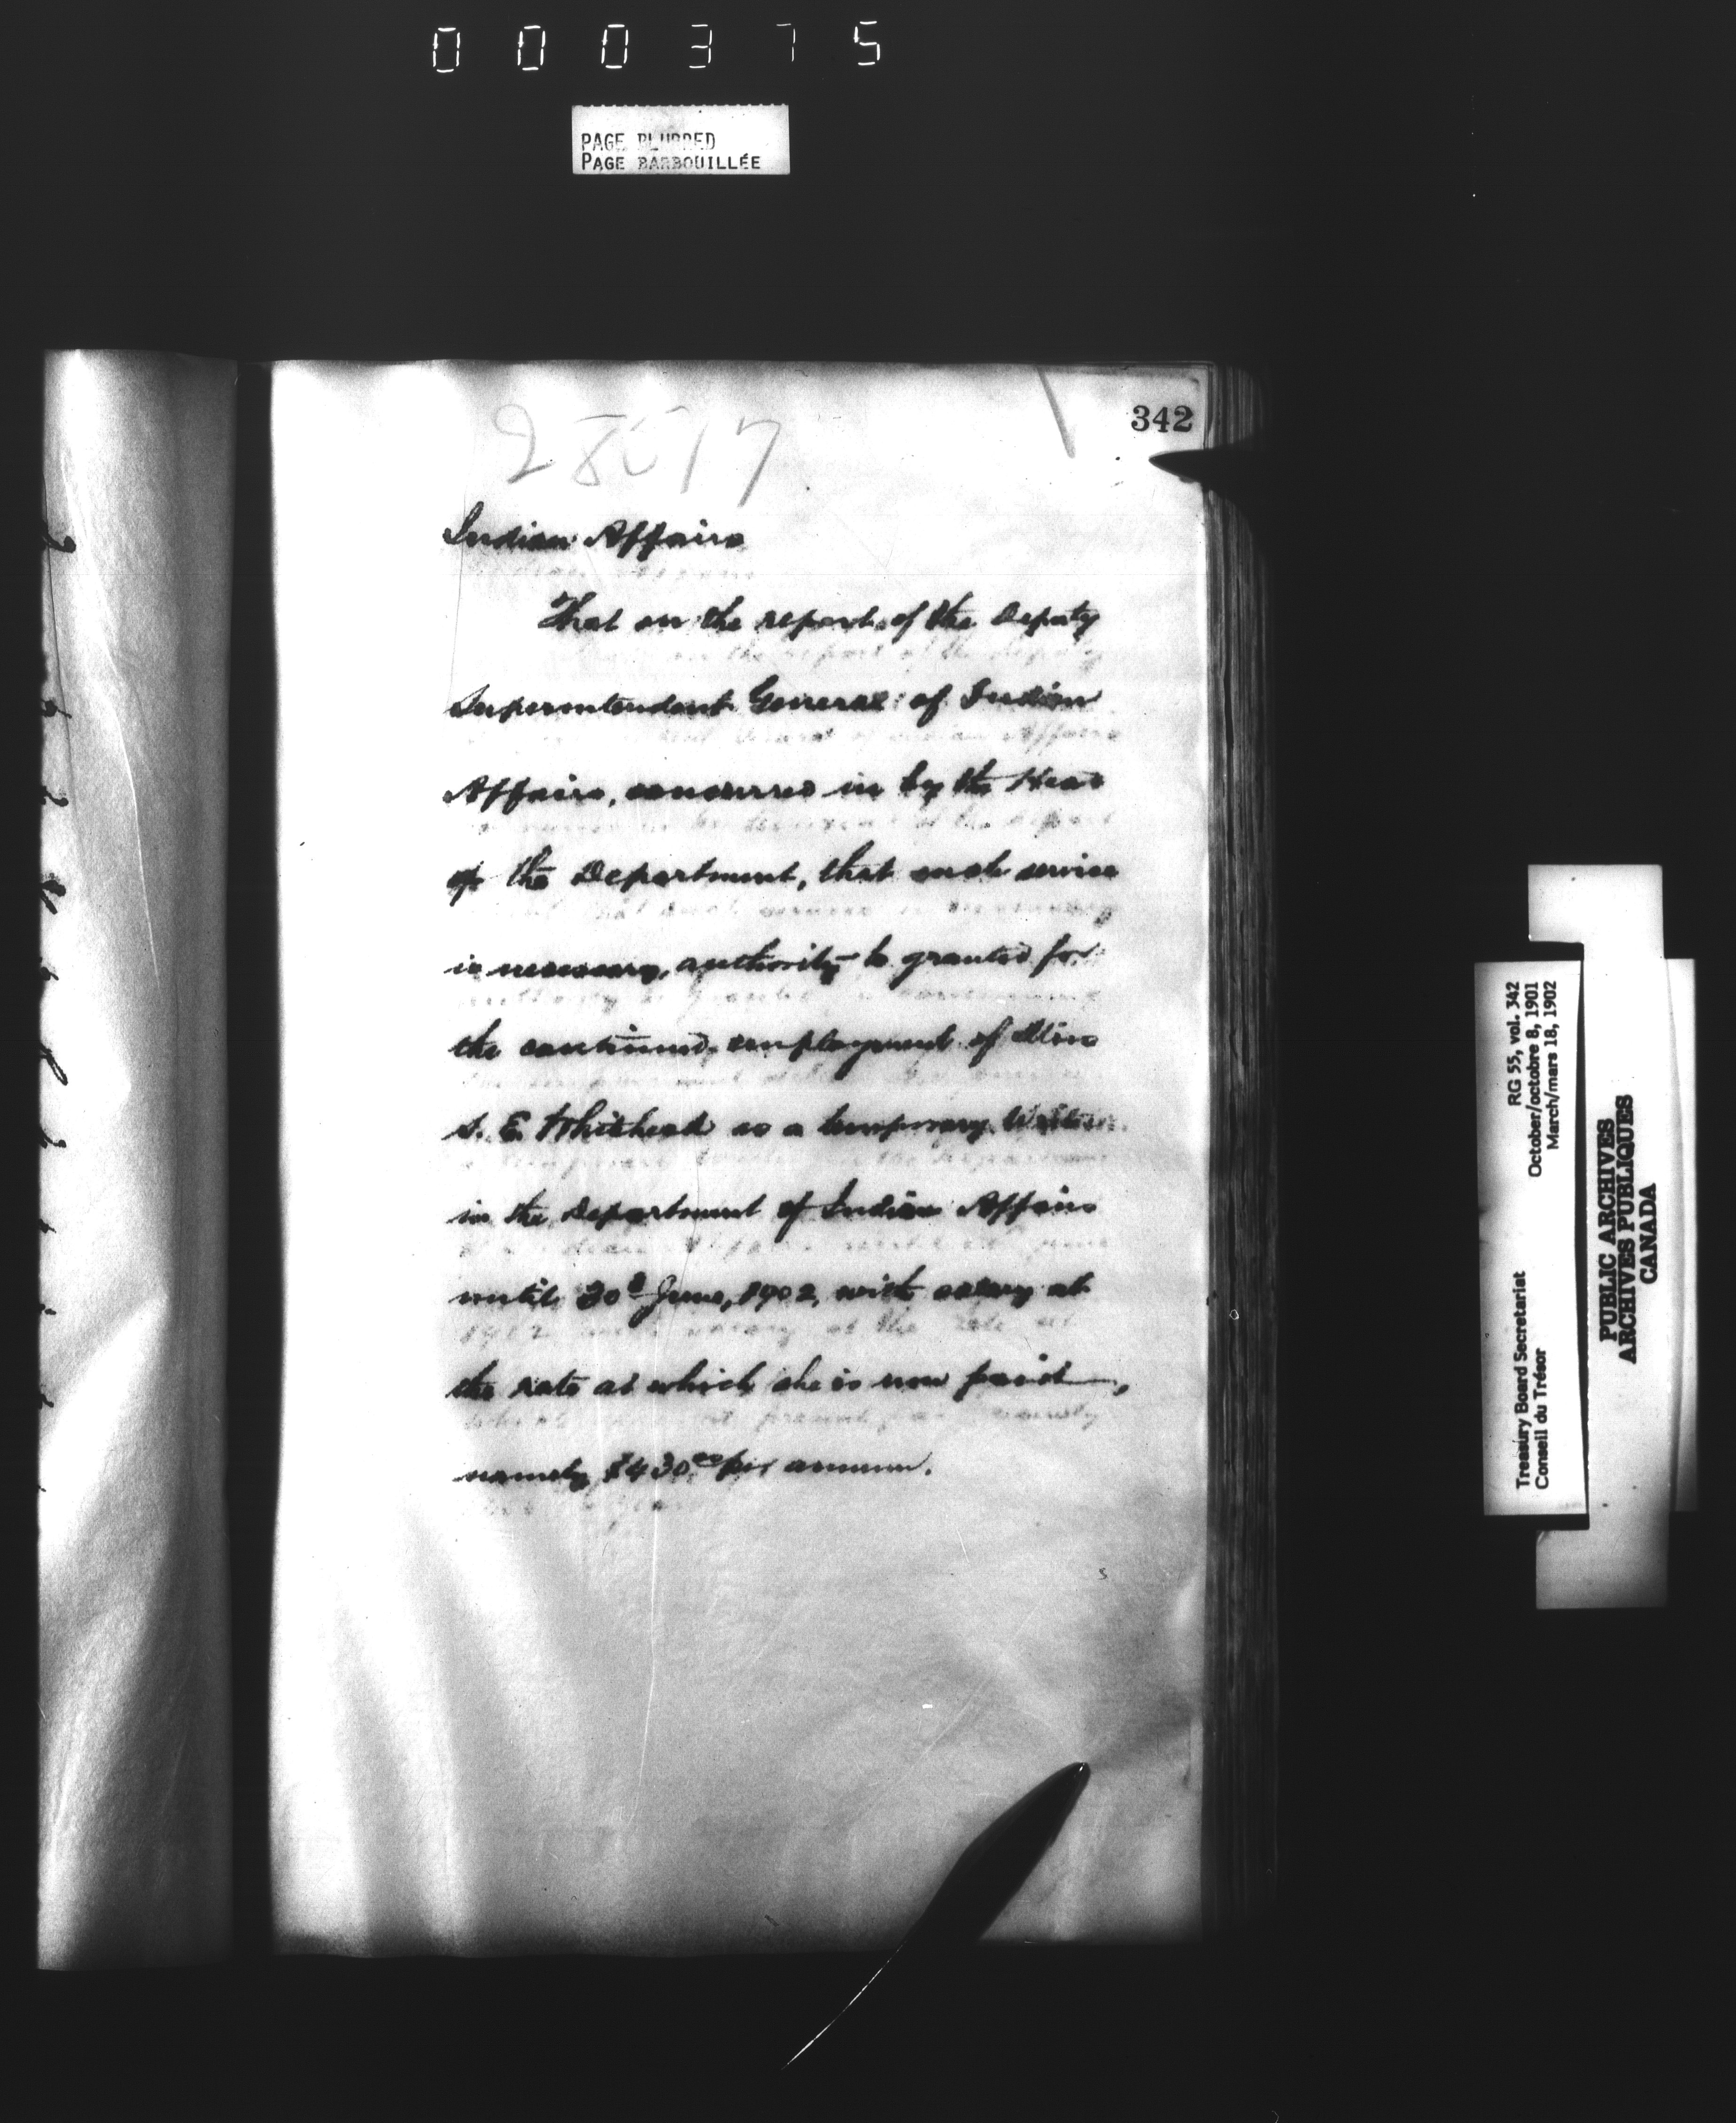 000375
PAGE BLURRED
PAGE BARBOUILLÉE
342
28517
Indian Affairs
That on the report of the Deputy
Superintendent General of Indian
Affairs, concurred in by the Head
of the Department, that such service
is necessary, authority be granted for
the continued employment of Miss
S. E. Whitehead as a temporary Writer
in the Department of Indian Affairs
until 30th June, 1902, with salary at
the rate at which she is now paid,
namely $430.00 per annum.
Treasury Board Secretariat RG 55, vol. 342
Conseil du Trésor October/octobre 8, 1901
March/mars 18, 1902
PUBLIC ARCHIVES
ARCHIVES PUBLIQUES
CANADA